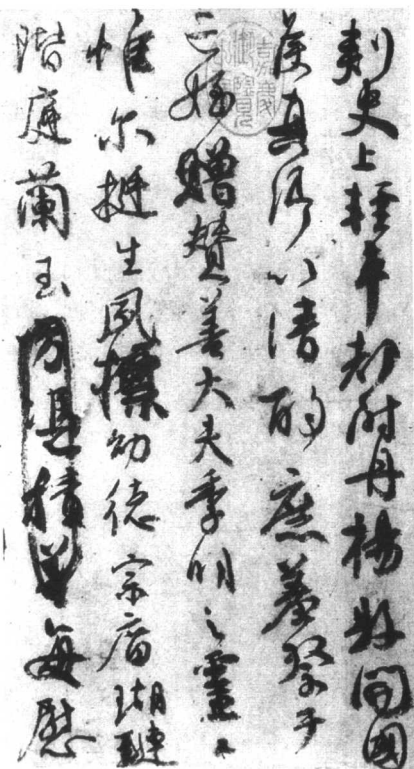 刺史上輕車都尉丹楊縣開國
侯真卿以清酌庶羞祭于
亡姪贈贊善大夫季明之靈曰
惟尔挺生夙標幼德宗廟瑚璉
階庭蘭玉方憑積善每慰
嘉慶
御覽